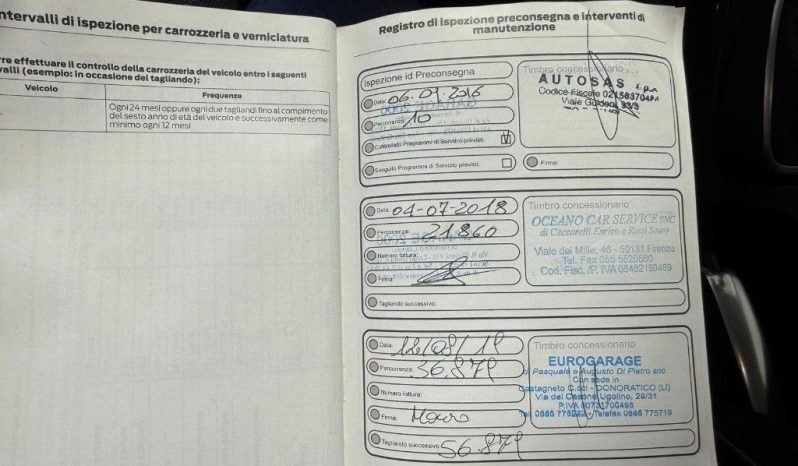 ntervalli di ispezione per carrozzeria e verniciatura
rre effettuare il controllo della carrozzeria del veicolo entro i seguenti
valli (esempio: in occasione del tagliando):
Veicolo
Frequenze
Ogni 24 mesi oppure ogni due tagliandi fino al compimento
del sesto anno di età del veicolo e successivamente come
minimo ogni 12 mesi
Registro di ispezione preconsegna e interventi di
manutenzione
Ispezione id Preconsegna
Data:
Percorrenza: 10
Controllato Programmi di Servizio previsti:
Eseguito Programmi di Servizio previsti:
Timbro concessionario
AUTOSAS s.p.a
Codice Fiscale
Viale
Firma:
Data: 04-07-2018
Percorrenza: 21.860
Numero fattura:
Firma:
Tagliando successivo:
Timbro concessionario
OCEANO CAR SERVICE SNC
di Ceccarelli Enrico e Rossi Sauro
Viale dei Mille, 46 - 50131 Firenze
Tel. Fax 055 5520580
Cod. Fisc. /P. IVA 05462180489
Data:
Percorrenza: 36.879
Numero fattura:
Firma:
Tagliando successivo: 56.879
Timbro concessionario
EUROGARAGE
di Pasquale e Augusto Di Pietro snc
Con sede in
Castagneto C.cci - DONORATICO (LI)
Via del Casone Ugolino, 29/31
P.IVA
Tel. 0565 - Telefax 0565 775719